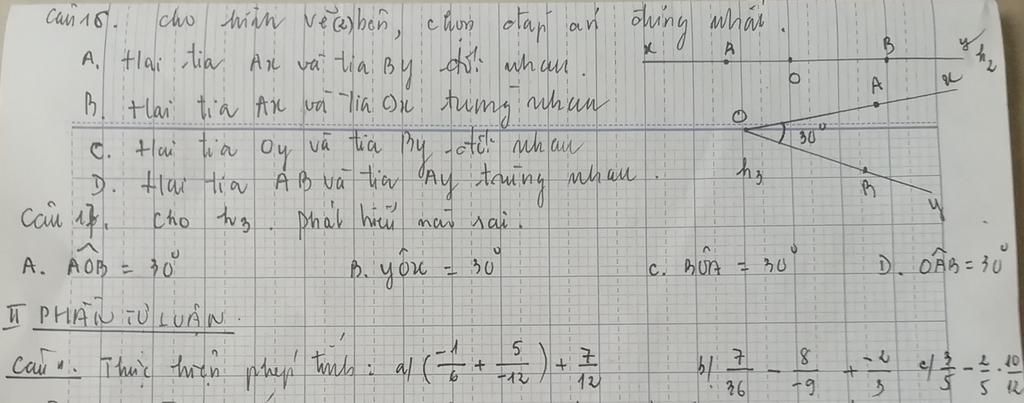 Câu 16. Cho hình vẽ(2)bên, chọn đáp án đúng nhất.
x A O B y h2
A. Hai tia Ax và tia By đối nhau.
B. Hai tia Ax và tia Ox trùng nhau
O 30° A x
C. Hai tia Oy và tia By đối nhau
D. Hai tia AB và tia Ay trùng nhau.
h3 B y
Câu 17. Cho h3. phát biểu nào sai.
A. AÔB = 30° B. yÔx = 30° C. BÔA = 30° D. OÂB = 30°
II PHẦN TỰ LUẬN.
Câu 1. Thực hiện phép tính: a/ (-1/6 + 5/-12) + 7/12 b/ 7/36 - 8/-9 + -2/3 c/ 3/5 - 2/5 . 10/12